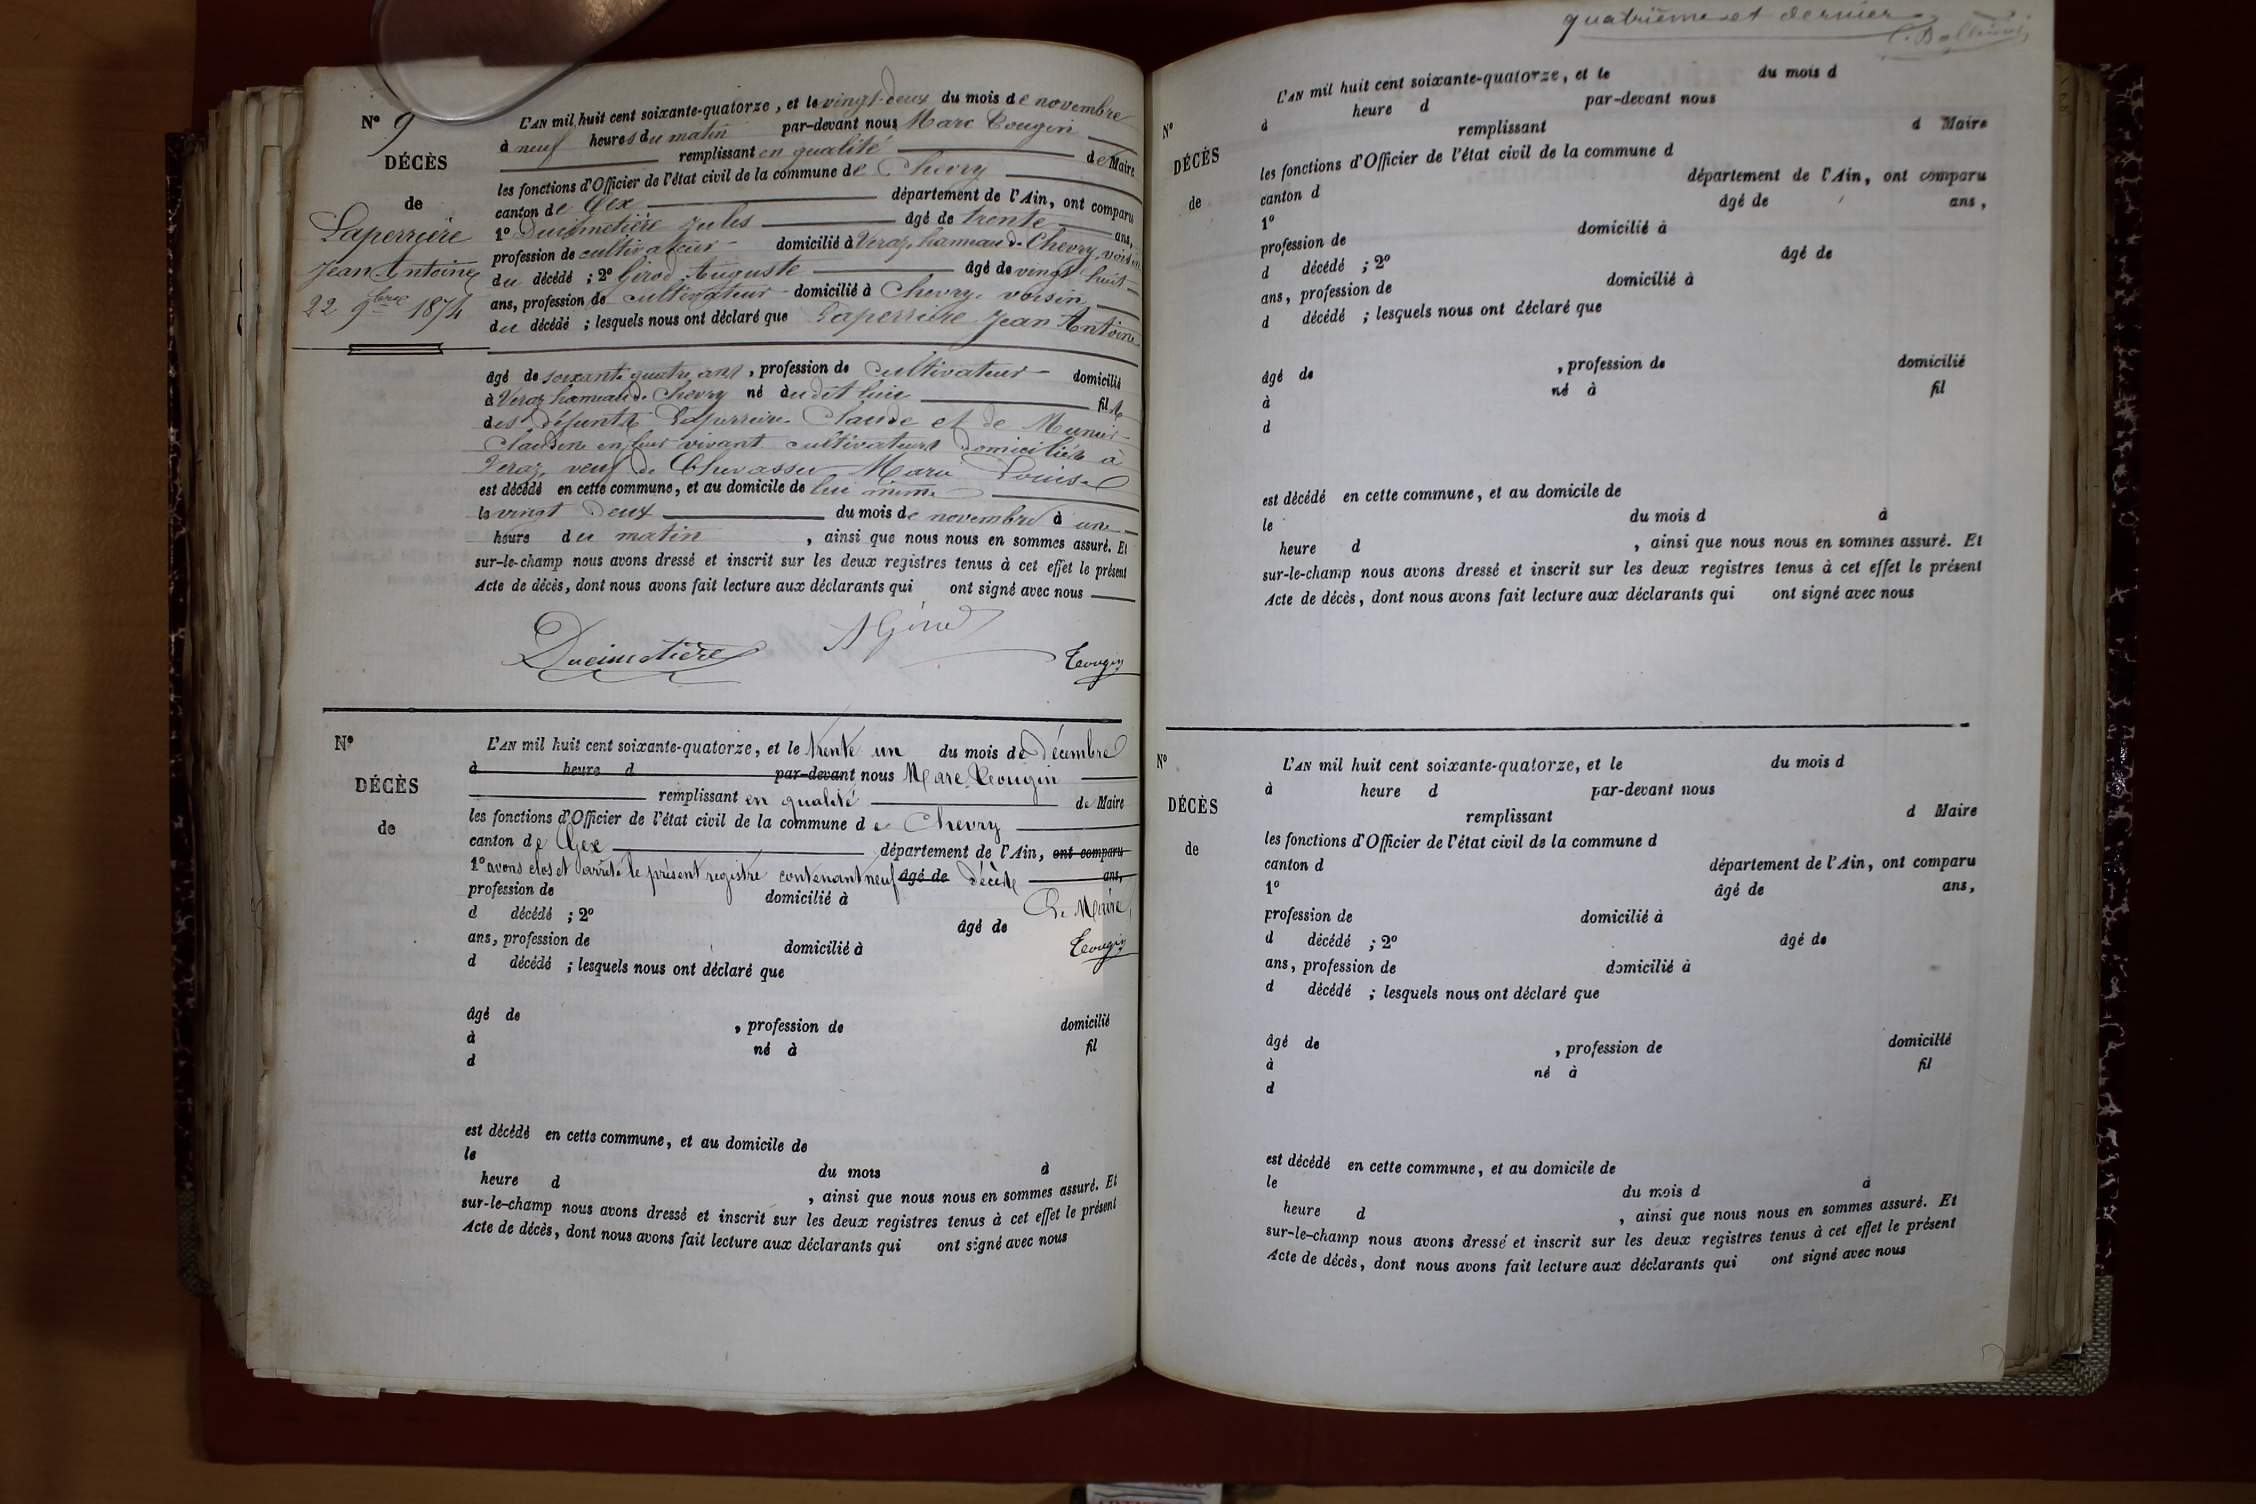 N° 9
DÉCÈS
de
Laperrière
Jean Antoine
22 9bre 1874
L'AN mil huit cent soixante-quatorze, et le vingt-deux du mois de novembre
à neuf heures du matin par-devant nous Marc Tougin
remplissant en qualité de Maire
les fonctions d'Officier de l'état civil de la commune de Chevry
canton de Gex département de l'Ain, ont comparu
1° Ducimetière Jules âgé de trente ans,
profession de cultivateur domicilié à Veraz, hameau de Chevry, voisin
du décédé ; 2° Girod Auguste âgé de vingt huit
ans, profession de cultivateur domicilié à Chevry, voisin
du décédé ; lesquels nous ont déclaré que Laperrière Jean Antoine
âgé de soixante quatre ans, profession de cultivateur domicilié
à Veraz hameau de Chevry né audit lieu fils
des défunts Laperrière Claude et de Munier
Claudine en leur vivant cultivateurs domiciliés à
Veraz, veuf de Chevassu Marie Louise
est décédé en cette commune, et au domicile de lui même
le vingt deux du mois de novembre à une
heure du matin, ainsi que nous nous en sommes assuré. Et
sur-le-champ nous avons dressé et inscrit sur les deux registres tenus à cet effet le présent
Acte de décès, dont nous avons fait lecture aux déclarants qui ont signé avec nous
Ducimetière A Girod Tougin
N°
DÉCÈS
de
L'AN mil huit cent soixante-quatorze, et le trente un du mois de décembre
à heure d par-devant nous Marc Tougin
remplissant en qualité de Maire
les fonctions d'Officier de l'état civil de la commune de Chevry
canton de Gex département de l'Ain, ont comparu
1° avons clos et arrêté le présent registre contenant neuf âgé de décès ans,
profession de domicilié à Le Maire,
d décédé ; 2° âgé de
ans, profession de domicilié à Tougin
d décédé ; lesquels nous ont déclaré que
âgé de , profession de domicilié
à né à fil
d
est décédé en cette commune, et au domicile de
le du mois à
heure d , ainsi que nous nous en sommes assuré. Et
sur-le-champ nous avons dressé et inscrit sur les deux registres tenus à cet effet le présent
Acte de décès, dont nous avons fait lecture aux déclarants qui ont signé avec nous
quatrième et dernier
N°
DÉCÈS
de
L'AN mil huit cent soixante-quatorze, et le du mois d
à heure d par-devant nous
remplissant d Maire
les fonctions d'Officier de l'état civil de la commune d
canton d département de l'Ain, ont comparu
1° âgé de ans,
profession de domicilié à
d décédé ; 2° âgé de
ans, profession de domicilié à
d décédé ; lesquels nous ont déclaré que
âgé de , profession de domicilié
à né à fil
d
est décédé en cette commune, et au domicile de
le du mois d à
heure d , ainsi que nous nous en sommes assuré. Et
sur-le-champ nous avons dressé et inscrit sur les deux registres tenus à cet effet le présent
Acte de décès, dont nous avons fait lecture aux déclarants qui ont signé avec nous
N°
DÉCÈS
de
L'AN mil huit cent soixante-quatorze, et le du mois d
à heure d par-devant nous
remplissant d Maire
les fonctions d'Officier de l'état civil de la commune d
canton d département de l'Ain, ont comparu
1° âgé de ans,
profession de domicilié à
d décédé ; 2° âgé de
ans, profession de domicilié à
d décédé ; lesquels nous ont déclaré que
âgé de , profession de domicilié
à né à fil
d
est décédé en cette commune, et au domicile de
le du mois d à
heure d , ainsi que nous nous en sommes assuré. Et
sur-le-champ nous avons dressé et inscrit sur les deux registres tenus à cet effet le présent
Acte de décès, dont nous avons fait lecture aux déclarants qui ont signé avec nous